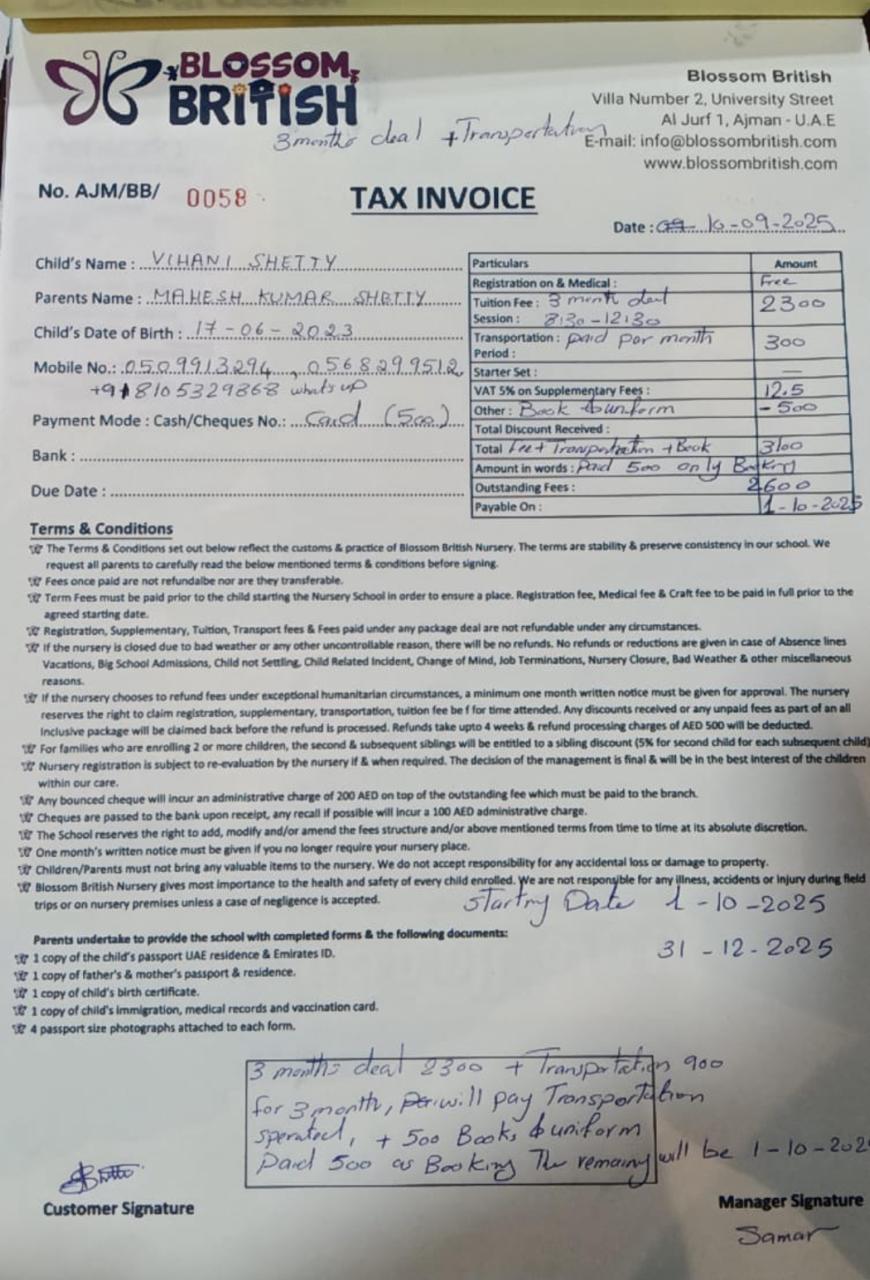 BLOSSOM
BRITISH
3 months deal + Transportation
Blossom British
Villa Number 2, University Street
Al Jurf 1, Ajman - U.A.E
E-mail: info@blossombritish.com
www.blossombritish.com
No. AJM/BB/ 0058
TAX INVOICE
Date : 10-09-2025
Child's Name : VIHANI SHETTY
Parents Name : MAHESH KUMAR SHETTY
Child's Date of Birth : 17-06-2023
Mobile No.: 0509913294, 0568299512
+918105329868 whats up
Payment Mode : Cash/Cheques No.: Card (500)
Bank :
Due Date :
Particulars Amount
Registration on & Medical : Free
Tuition Fee : 3 month deal 2300
Session : 8:30-12:30
Transportation : paid per month 300
Period :
Starter Set : —
VAT 5% on Supplementary Fees : 12.5
Other : Book & uniform - 500
Total Discount Received :
Total Fee + Transportation + Book 3100
Amount in words : Paid 500 only Booking
Outstanding Fees : 2600
Payable On : 1-10-2025
Terms & Conditions
The Terms & Conditions set out below reflect the customs & practice of Blossom British Nursery. The terms are stability & preserve consistency in our school. We
request all parents to carefully read the below mentioned terms & conditions before signing.
Fees once paid are not refundalbe nor are they transferable.
Term Fees must be paid prior to the child starting the Nursery School in order to ensure a place. Registration fee, Medical fee & Craft fee to be paid in full prior to the
agreed starting date.
Registration, Supplementary, Tuition, Transport fees & Fees paid under any package deal are not refundable under any circumstances.
If the nursery is closed due to bad weather or any other uncontrollable reason, there will be no refunds. No refunds or reductions are given in case of Absence lines
Vacations, Big School Admissions, Child not Settling, Child Related Incident, Change of Mind, Job Terminations, Nursery Closure, Bad Weather & other miscellaneous
reasons.
If the nursery chooses to refund fees under exceptional humanitarian circumstances, a minimum one month written notice must be given for approval. The nursery
reserves the right to claim registration, supplementary, transportation, tuition fee be f for time attended. Any discounts received or any unpaid fees as part of an all
Inclusive package will be claimed back before the refund is processed. Refunds take upto 4 weeks & refund processing charges of AED 500 will be deducted.
For families who are enrolling 2 or more children, the second & subsequent siblings will be entitled to a sibling discount (5% for second child for each subsequent child)
Nursery registration is subject to re-evaluation by the nursery if & when required. The decision of the management is final & will be in the best interest of the children
within our care.
Any bounced cheque will incur an administrative charge of 200 AED on top of the outstanding fee which must be paid to the branch.
Cheques are passed to the bank upon receipt, any recall if possible will incur a 100 AED administrative charge.
The School reserves the right to add, modify and/or amend the fees structure and/or above mentioned terms from time to time at its absolute discretion.
One month's written notice must be given if you no longer require your nursery place.
Children/Parents must not bring any valuable items to the nursery. We do not accept responsibility for any accidental loss or damage to property.
Blossom British Nursery gives most importance to the health and safety of every child enrolled. We are not responsible for any illness, accidents or injury during field
trips or on nursery premises unless a case of negligence is accepted.
Startry Date 1-10-2025
31-12-2025
Parents undertake to provide the school with completed forms & the following documents:
1 copy of the child's passport UAE residence & Emirates ID.
1 copy of father's & mother's passport & residence.
1 copy of child's birth certificate.
1 copy of child's immigration, medical records and vaccination card.
4 passport size photographs attached to each form.
3 months deal 2300 + Transportation 900
for 3 month, will pay Transportation
sperated, + 500 Books & uniform
Paid 500 as Booking The remainy will be 1-10-202
Customer Signature
Manager Signature
Samar